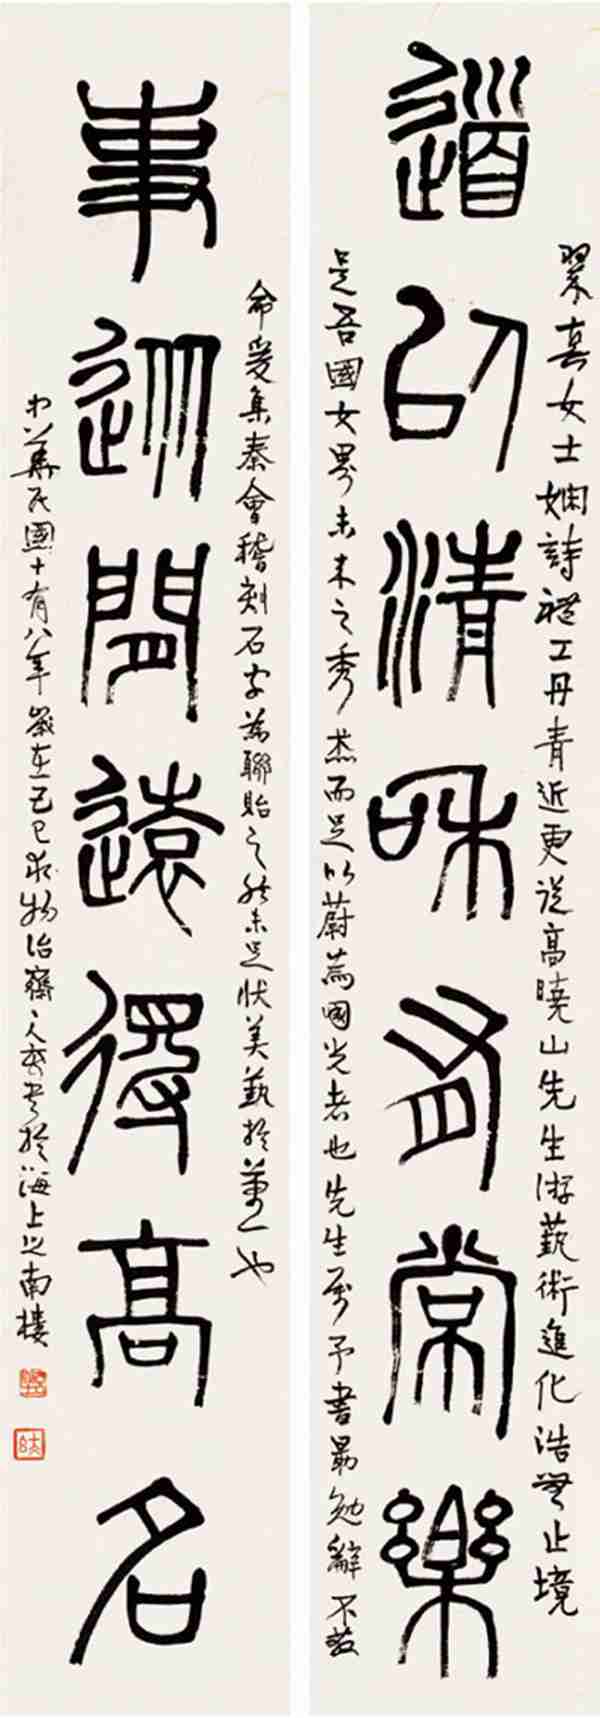 道以清和有常樂
翠真女士嫻詩禮工丹青近更從高曉山先生游藝術進化浩無止境
是吾國女界未來之秀杰而足以蔚為國光者也先生屬予書勗勉辭不敢
事從閒遠得高名
命爰集秦會稽刻石字為聯貽之然未足狀美藝於萬一也
中華民國十有八年歲在己巳秋物治齋主人書於海上之南樓